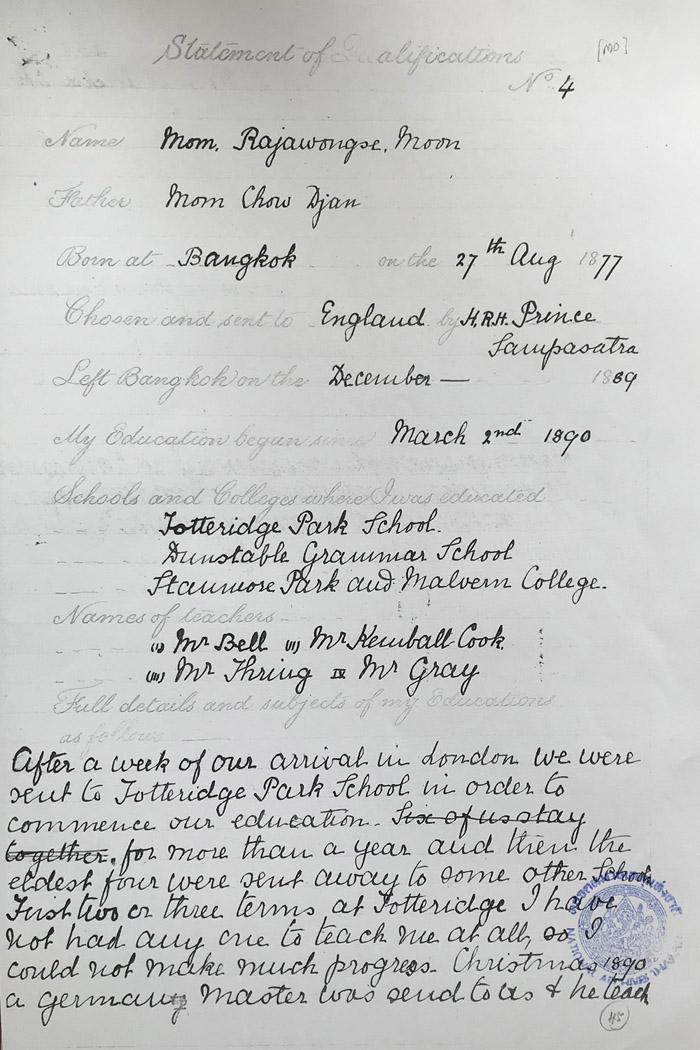 Statement of Qualifications
[MO]
No. 4
Name Mom. Rajawongse. Moon
Father Mom Chow Djan
Born at Bangkok on the 27th Aug 1877
Chosen and sent to England by H.R.H. Prince
Sampasatra
Left Bangkok on the December — 1889
My Education began since March 2nd 1890
Schools and Colleges where I was educated
Totteridge Park School.
Dunstable Grammar School
Stanmore Park and Malvern College.
Names of teachers
(I) Mr Bell (II) Mr Kemball Cook
(III) Mr Thring IV Mr Gray
Full details and subjects of my Educations
as follows
After a week of our arrival in London we were
sent to Totteridge Park School in order to
commence our education. Six of us stay
together, for more than a year and then the
eldest four were sent away to some other School.
First two or three terms at Totteridge I have
not had any one to teach me at all, so I
could not make much progress. Christmas 1890
a german Master was send to us & he teach
45